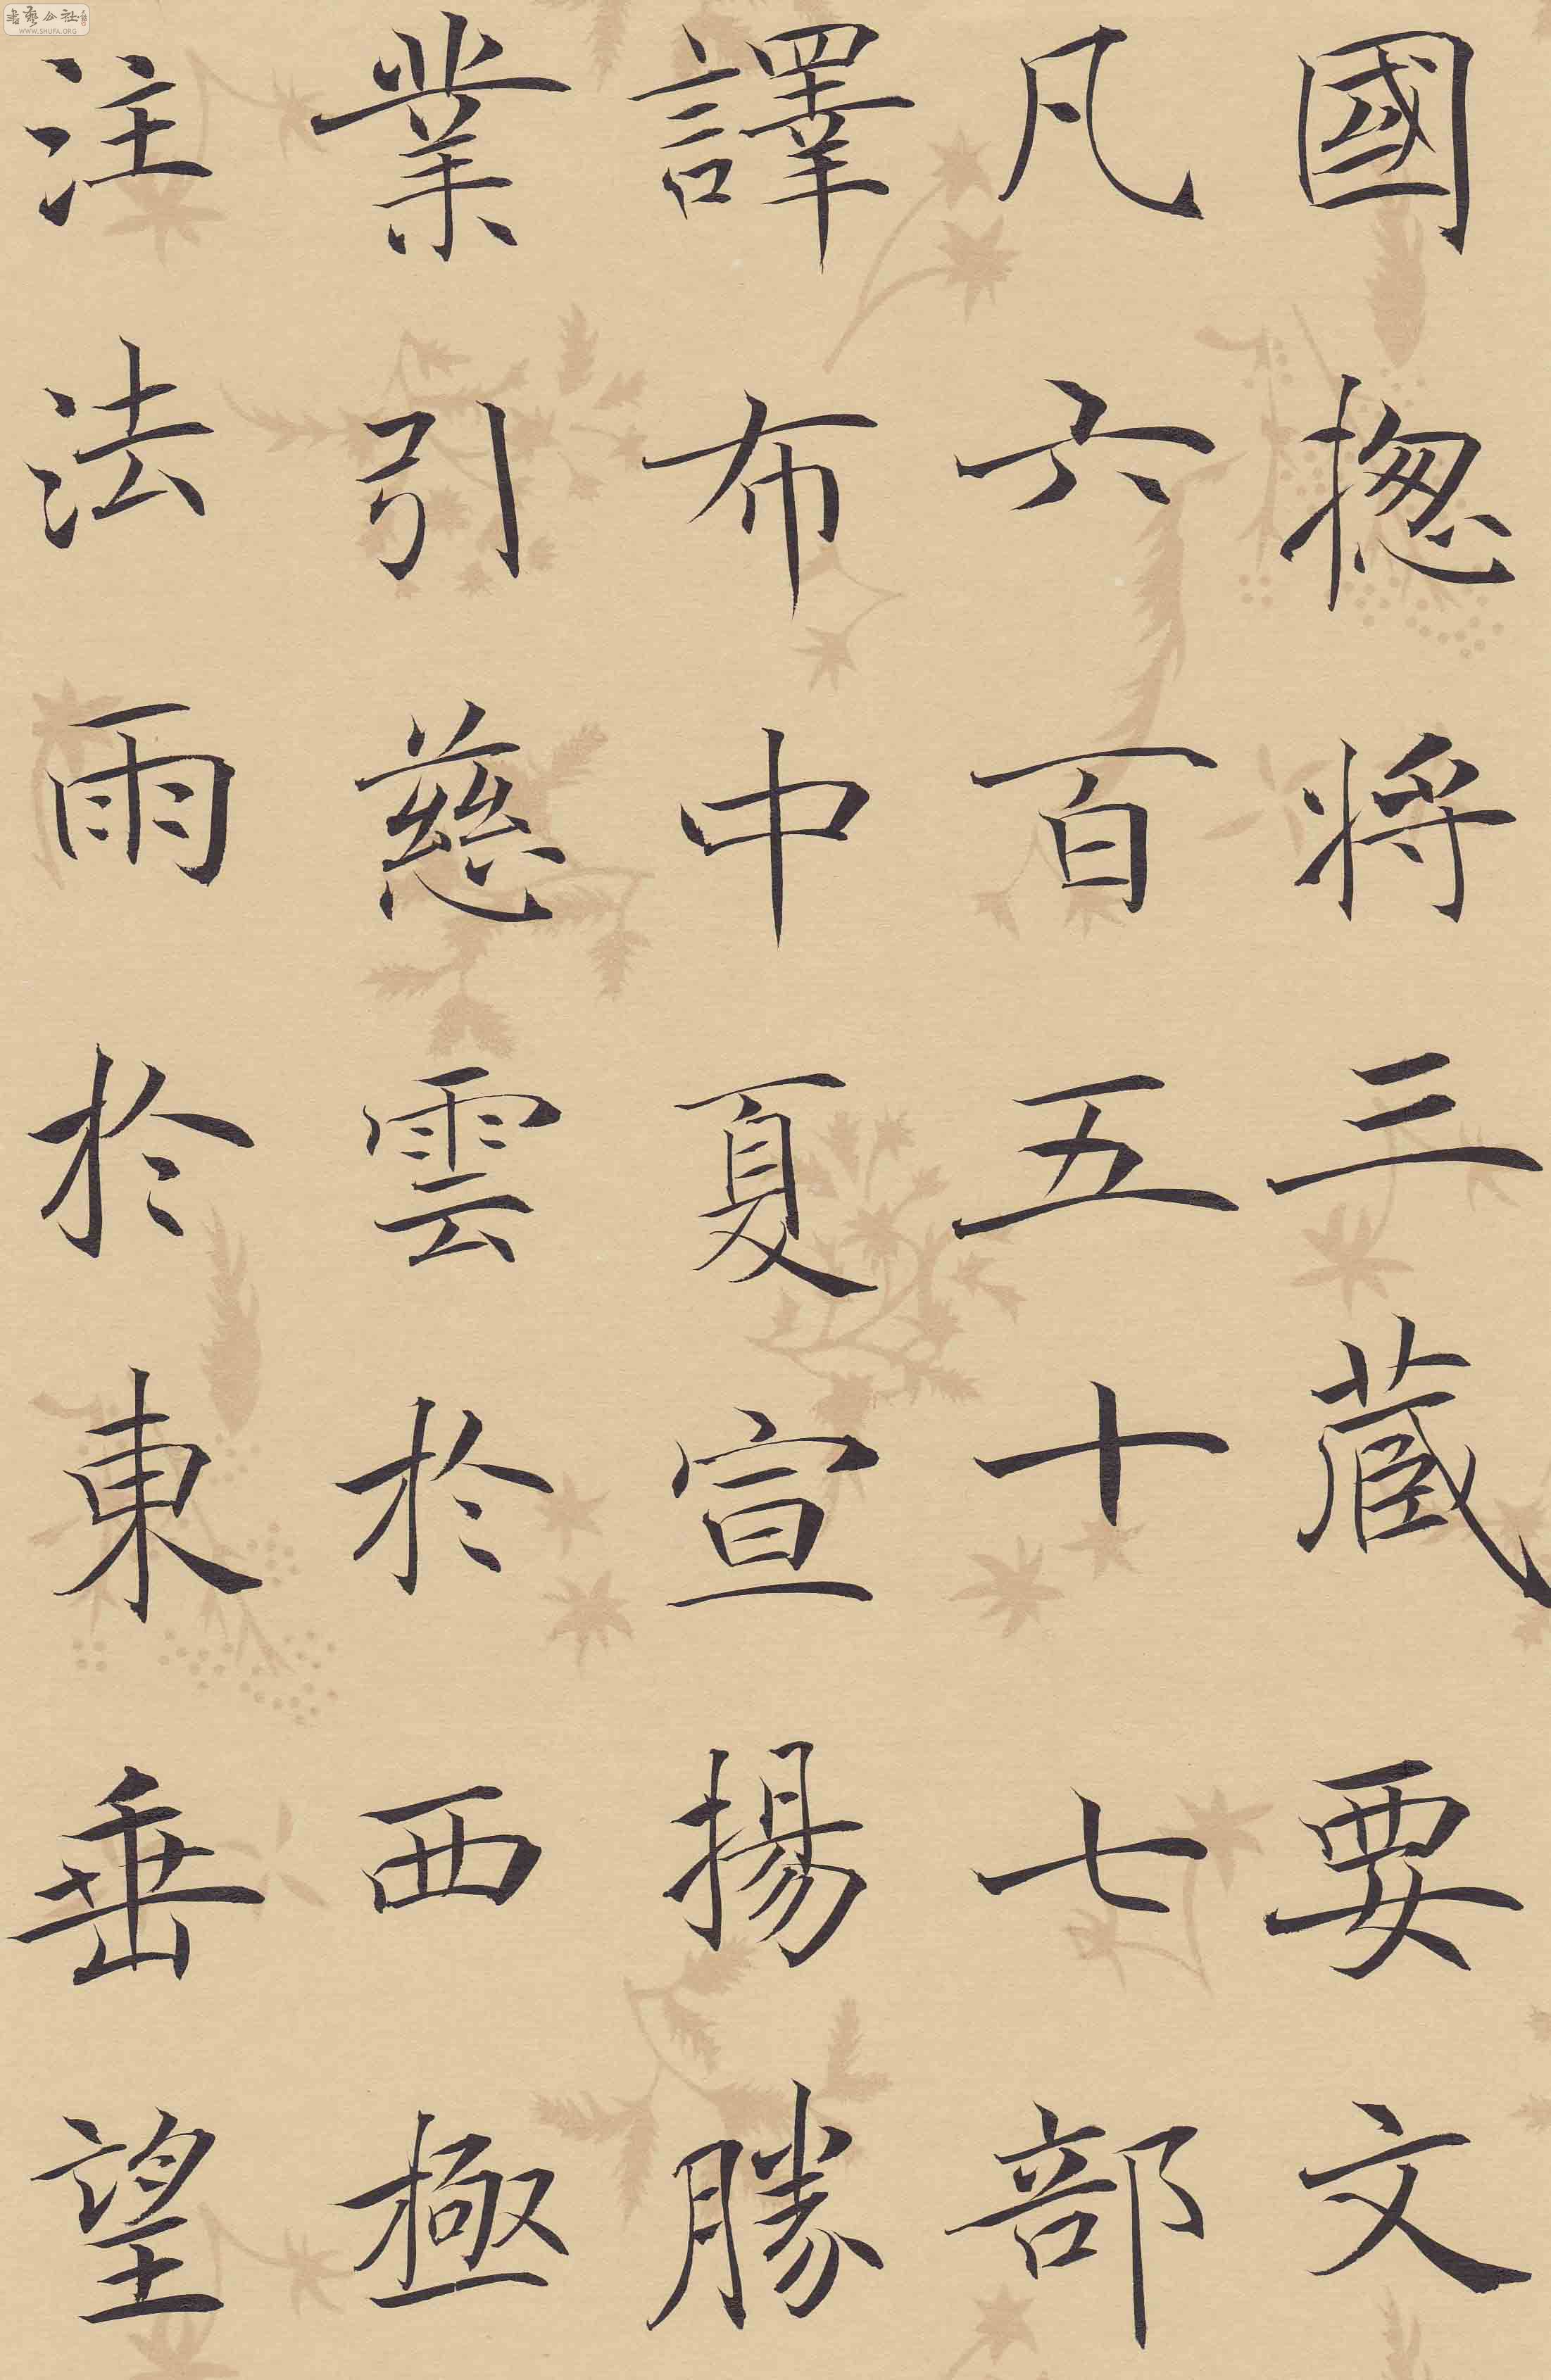 國揔將三蔵要文
凡六百五十七部
譯布中夏宣揚勝
業引慈雲於西極
注法雨於東垂望
書藝公社
WWW.SHUFA.ORG